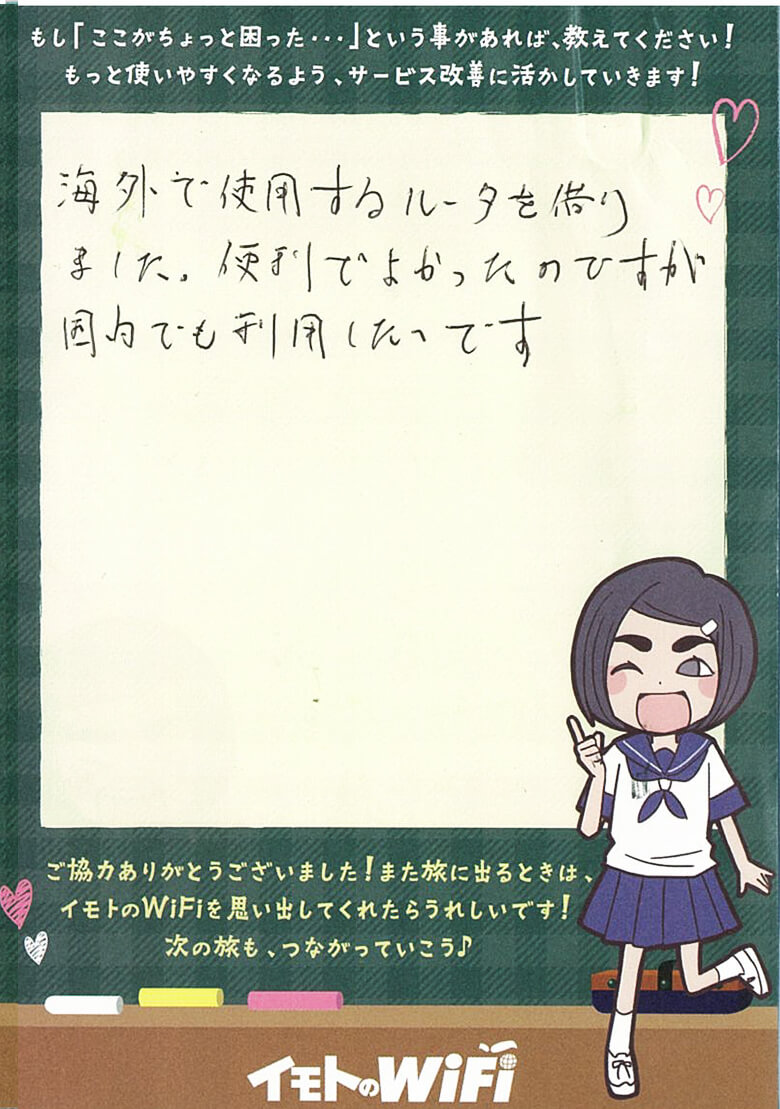 もし「ここがちょっと困った・・・」という事があれば、教えてください!
もっと使いやすくなるよう、サービス改善に活かしていきます!
海外で使用するルータを借り
ました。便利でよかったのですが
国内でも利用したいです
ご協力ありがとうございました!また旅に出るときは、
イモトのWiFiを思い出してくれたらうれしいです!
次の旅も、つながっていこう♪
イモトのWiFi